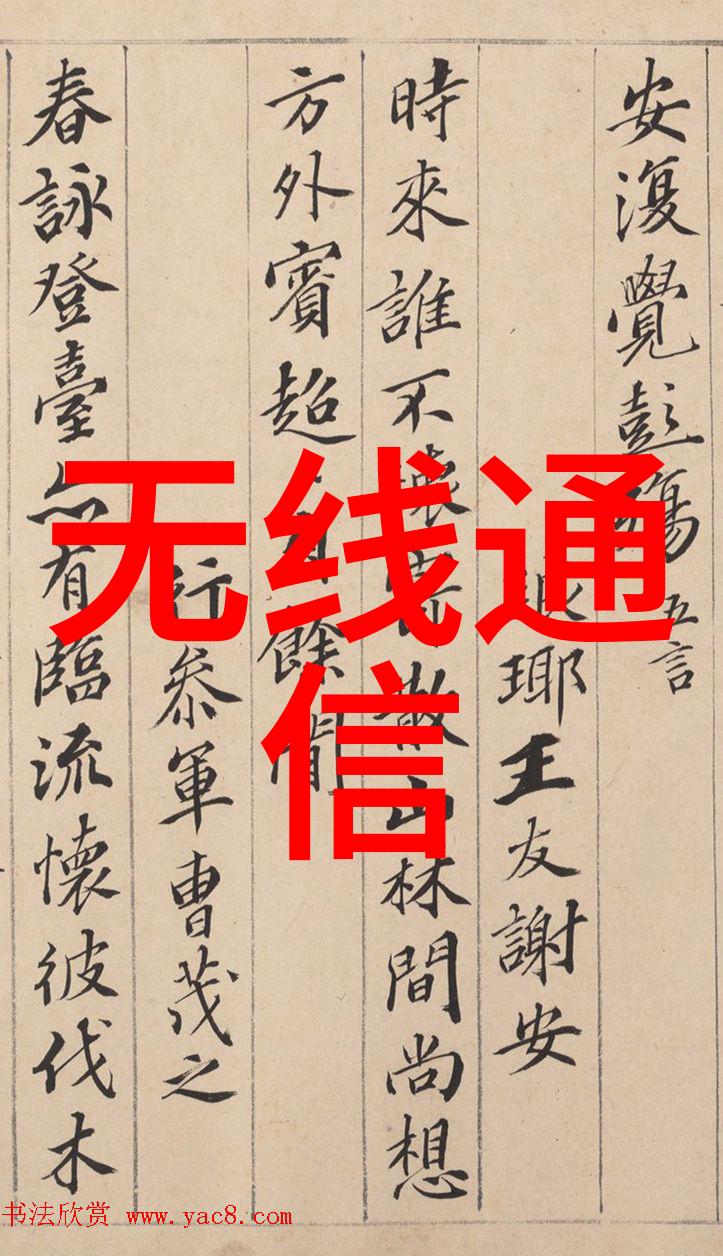 安復覺彭殤 五言
琊王友謝安
時來誰不懷寄散山林間尚想
方外賓超有餘閒
行參軍曹茂之
春詠登臺亦有臨流懷彼伐木
无线通
信
书法欣赏 www.yac8.com